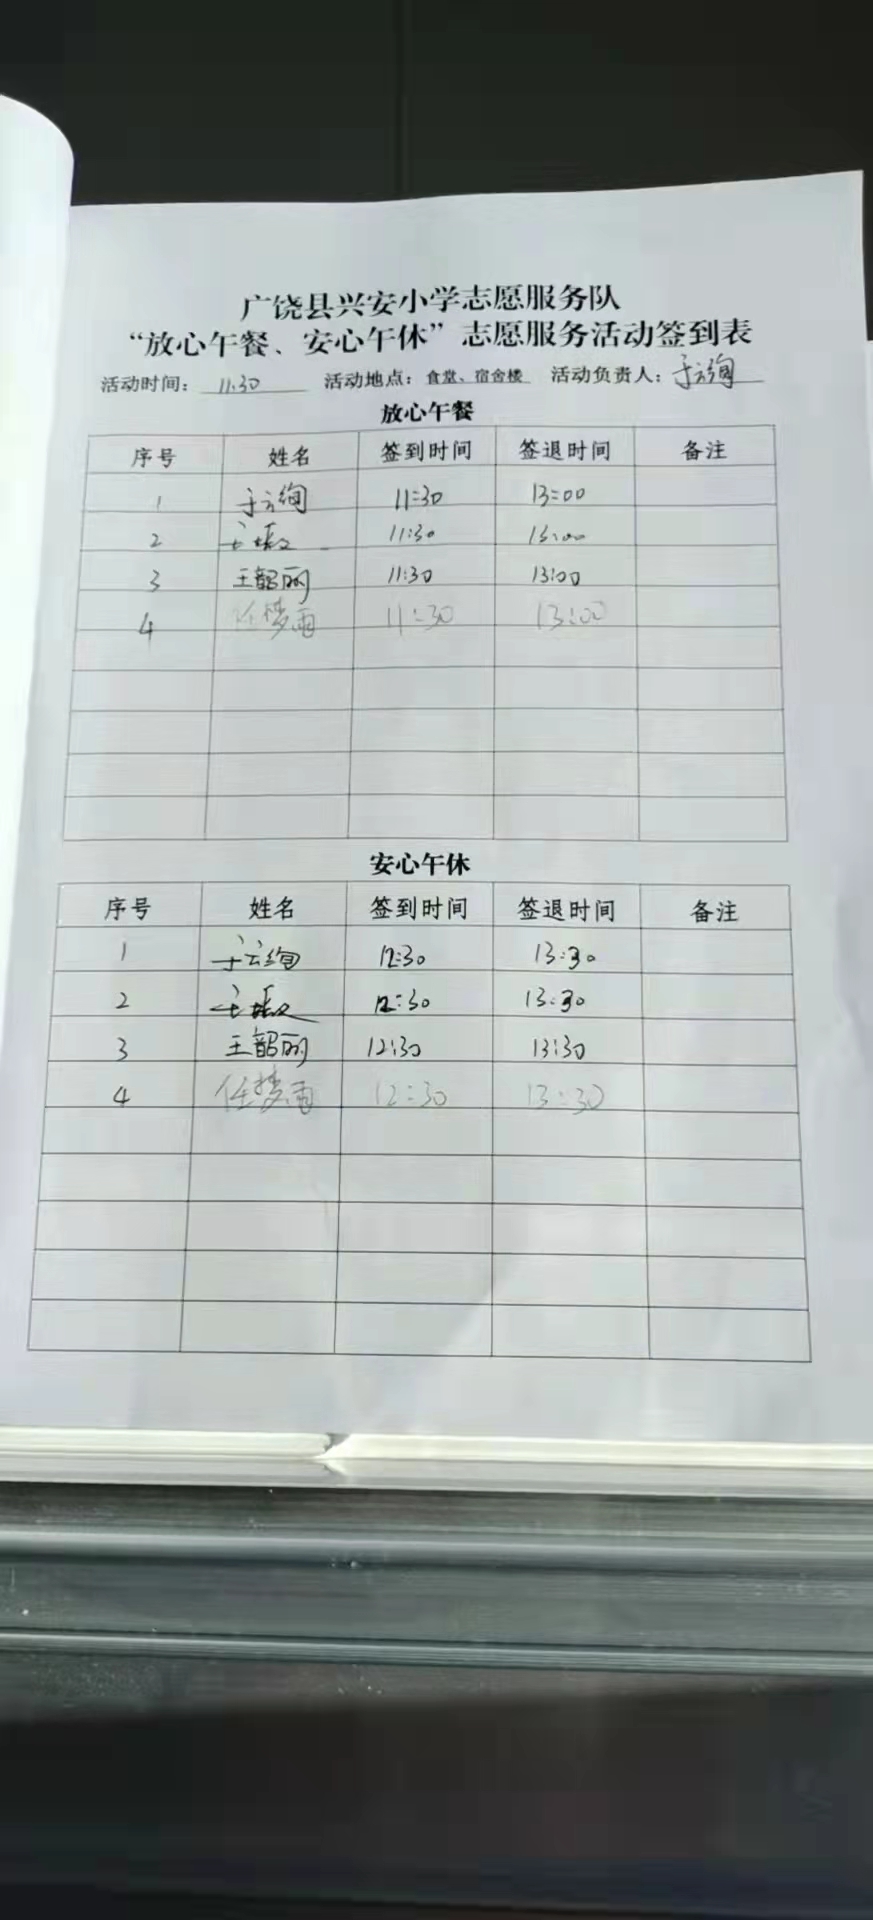 广饶县兴安小学志愿服务队
“放心午餐、安心午休”志愿服务活动签到表
活动时间： 11.30 活动地点：食堂、宿舍楼 活动负责人：于云绚
放心午餐
序号 姓名 签到时间 签退时间 备注
1 于云绚 11:30 13:00
2 11:30 13:00
3 王韶丽 11:30 13:00
4 任梦雨 11:30 13:00
安心午休
序号 姓名 签到时间 签退时间 备注
1 于云绚 12:30 13:30
2 12:30 13:30
3 王韶丽 12:30 13:30
4 任梦雨 12:30 13:30